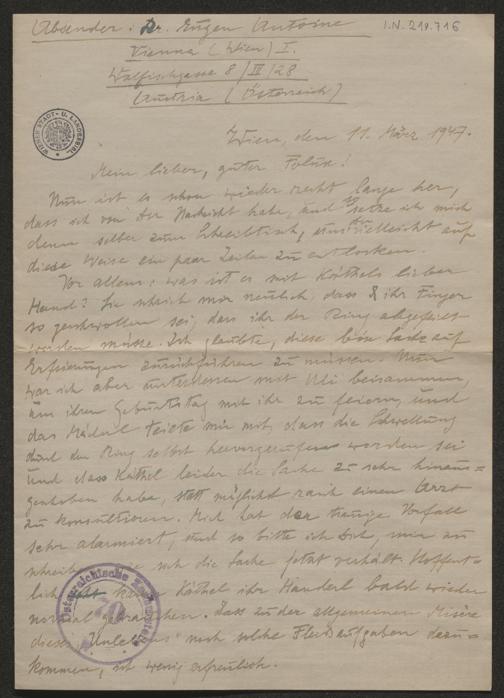 Absender: Dr. Eugen Antoine
I.N. 210.716
Vienna (Wien) I.
Walfischgasse 8/IV/28
Austria (Österreich)
Wien, den 11. März 1947.
Mein lieber, guter Folux!
Nun ist es schon wieder recht lange her,
dass ich von Dir Nachricht habe, und so setze ich mich
denn selber zum Schreibtisch, um Dir vielleicht auf
diese Weise ein paar Zeilen zu entlocken.
Vor allem: was ist es mit Käthels lieber
Hand? Sie schrieb mir neulich, dass ihr Finger
so geschwollen sei, dass ihr der Ring abgefeilt
werden müsse. Ich glaubte, diese böse Sache auf
Erfrierungen zurückführen zu müssen. Nun
war ich aber unterdessen mit Uli beisammen,
um ihren Geburtstag mit ihr zu feiern, und
das Mäderl teilte mir mit, dass die Schwellung
durch den Ring selbst hervorgerufen worden sei
und dass Käthel leider die Sache zu sehr hinaus=
geschoben habe, statt möglichst rasch einen Arzt
zu konsultieren. Mich hat der traurige Vorfall
sehr alarmiert, und so bitte ich Dich, mir zu
schreiben, wie sich die Sache jetzt verhält. Hoffent=
lich kann Käthel ihr Handerl bald wieder
normal gebrauchen. Dass zu der allgemeinen Misère
dieses Unlebens noch solche Fleissaufgaben dazu=
kommen, ist wenig erfreulich.
WIENER STADT- U. LANDESBIBL.
Österreichische Zensurstelle
70